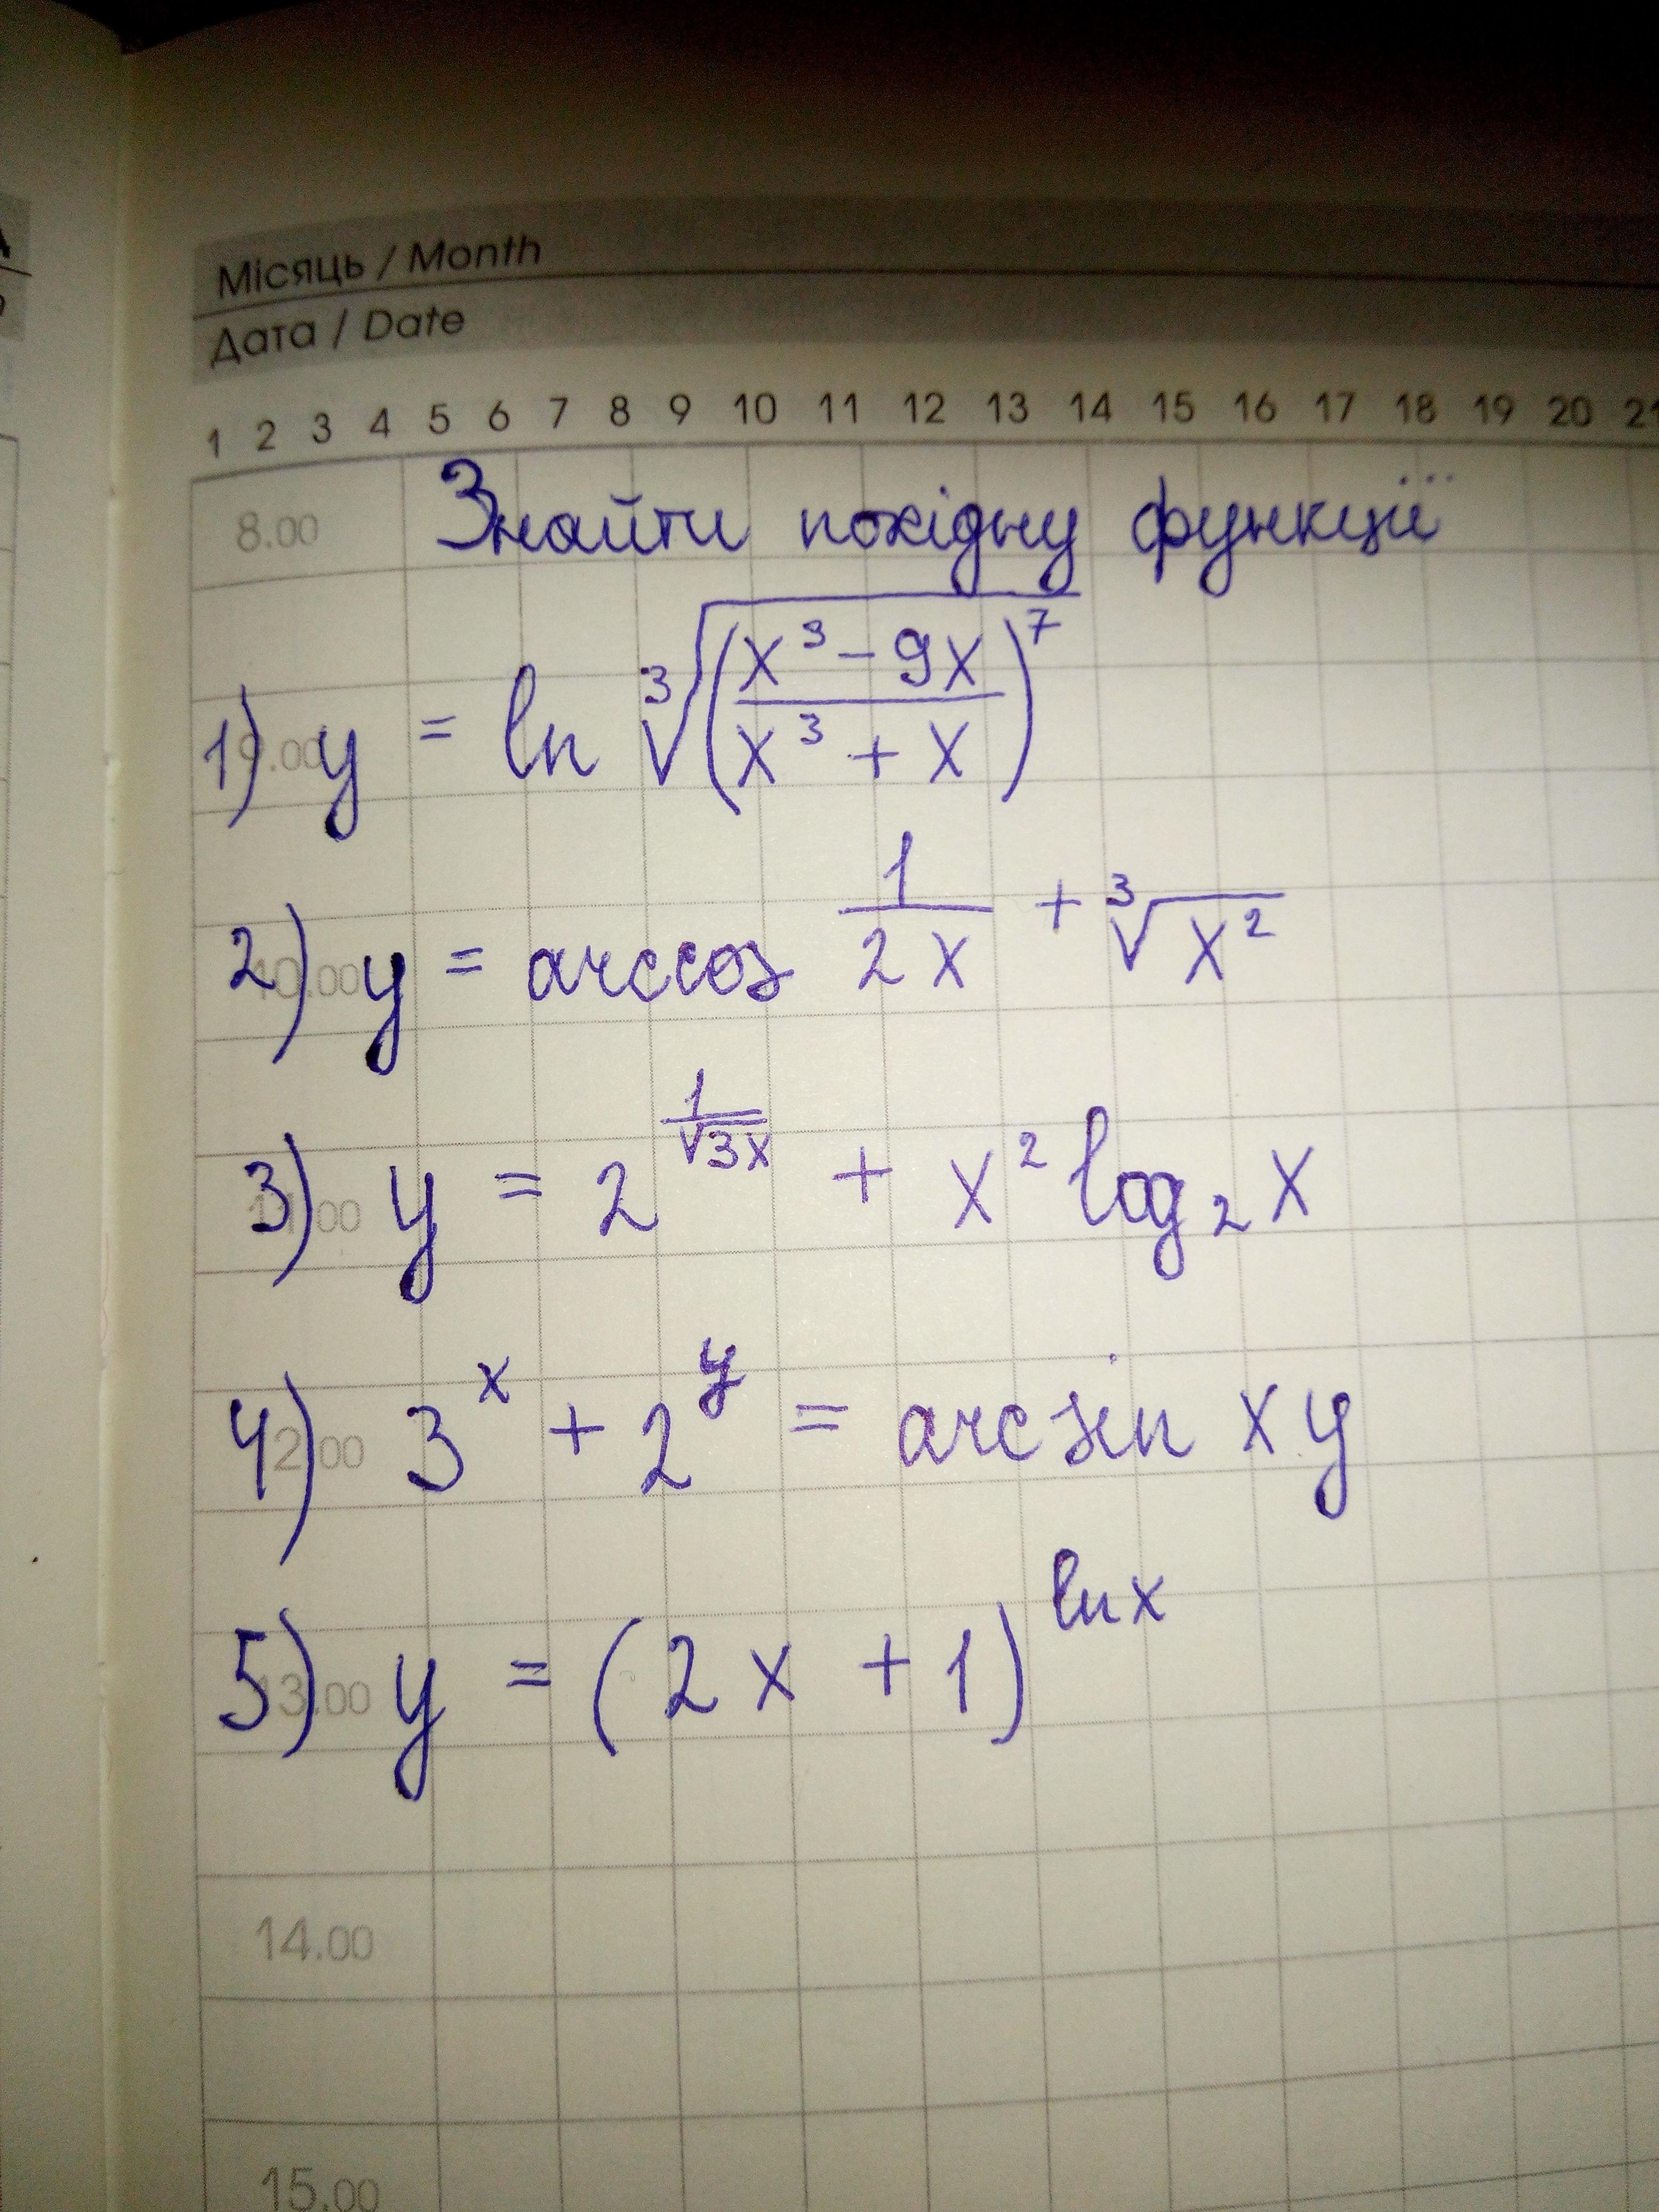 Місяць / Month
Дата / Date
1 2 3 4 5 6 7 8 9 10 11 12 13 14 15 16 17 18 19 20 21
8.00 Знайти похідну функції
9.00 1) y = ln ∛((x³ - 9x)/(x³ + x))⁷
10.00 2) y = arccos 1/(2x) + ∛(x²)
11.00 3) y = 2^(1/√(3x)) + x² log₂ x
12.00 4) 3^x + 2^y = arcsin xy
13.00 5) y = (2x + 1)^(ln x)
14.00
15.00